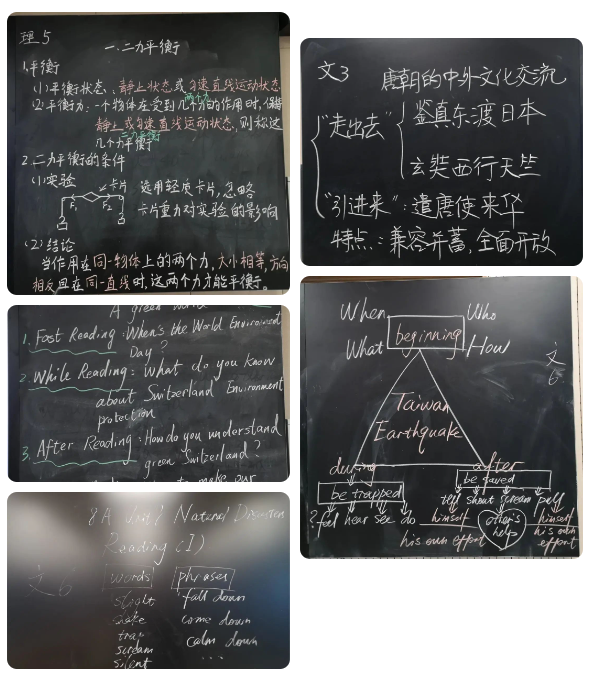 理5
一.二力平衡
1.平衡
(1)平衡状态:静止状态或匀速直线运动状态
(2)平衡力:一个物体在受到几个力的作用时,保持
静止或匀速直线运动状态,则称这
几个力平衡
二力平衡
2.二力平衡的条件
(1)实验
卡片
F₁ F₂
选用轻质卡片,忽略
卡片重力对实验的影响
(2)结论
当作用在同一物体上的两个力,大小相等,方向
相反且在同一直线时,这两个力才能平衡。
文3
唐朝的中外文化交流
"走出去"
鉴真东渡日本
玄奘西行天竺
"引进来":遣唐使来华
特点:兼容并蓄,全面开放
A green world
1. Fast Reading: When's the World Environment
Day?
2. While Reading: What do you know
about Switzerland Environment
protection
3. After Reading: How do you understand
green Switzerland?
to make our
When Who
beginning
What How
文6
Taiwan
Earthquake
during after
be trapped be saved
tell shout scream pull
? feel hear see do
himself other's himself
his own effort help his own
effort
8A Unit 8 Natural Disasters
Reading (I)
文6
words phrases
fall down
shake come down
trap calm down
scream
silent ...